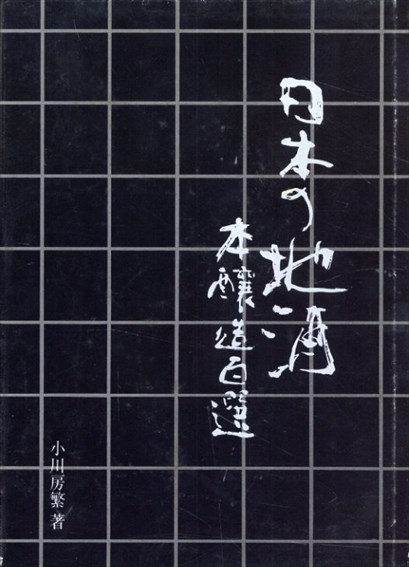 日本の地酒
本醸造百選
小川房繁 著